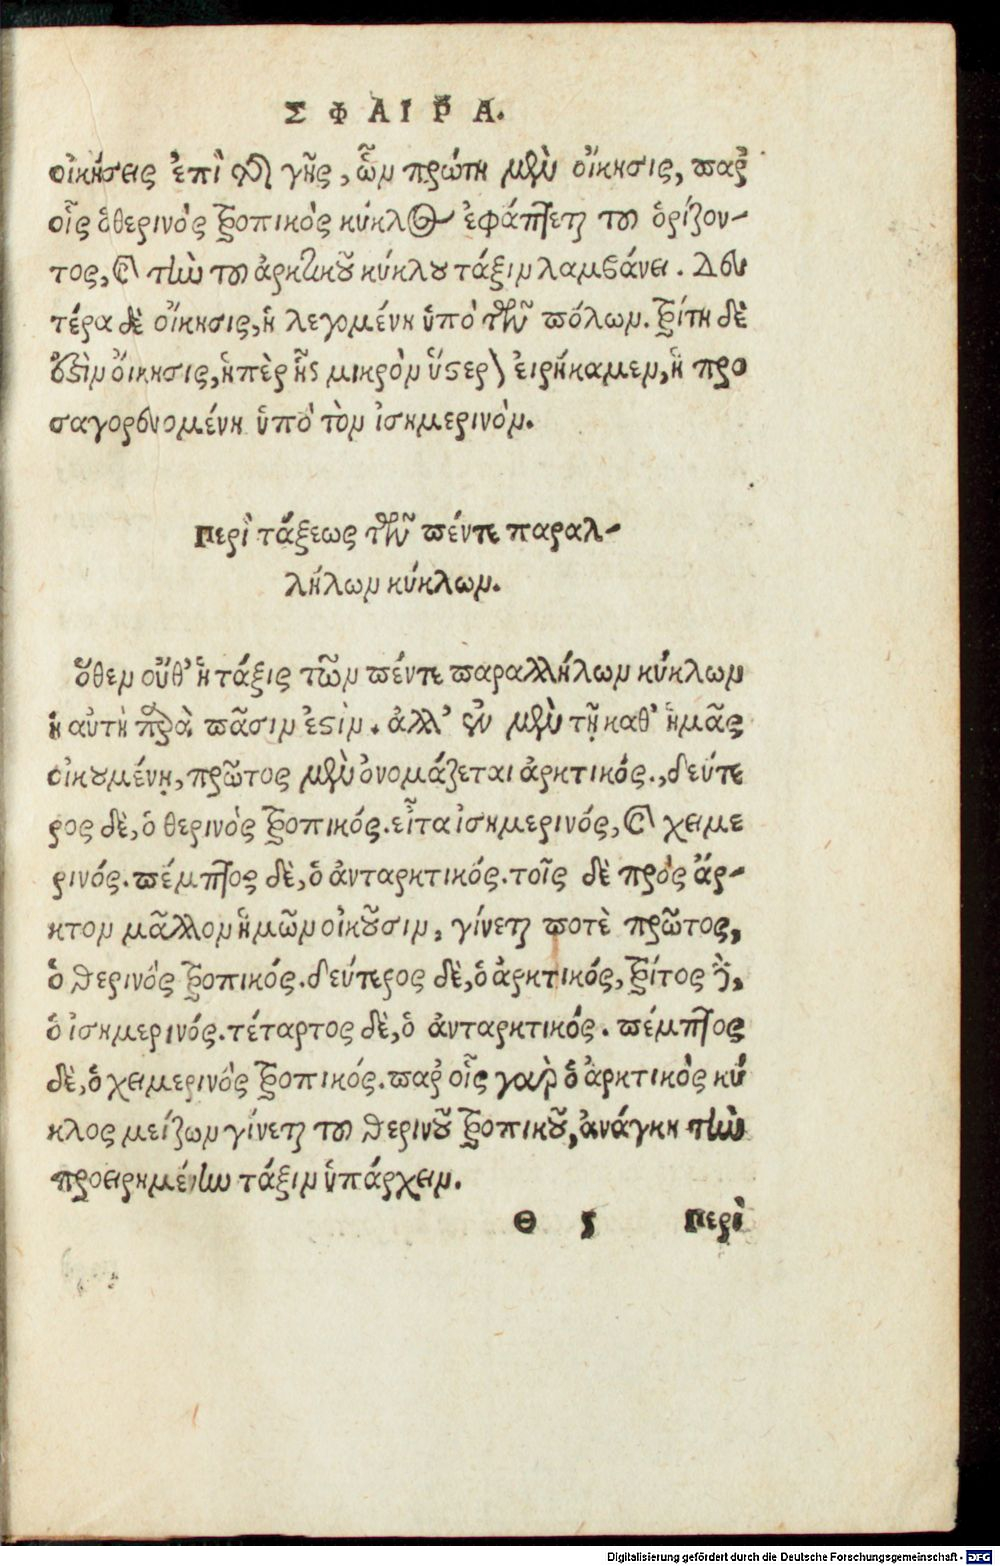 ΣΦΑΙΡΑ.
οἰκήσεις ἐπὶ τῆ γῆς, ὧν πρώτη μὲν οἴκησις, παρ᾽
οἷς ὁ θερινὸς τροπικὸς κύκλος ἐφάπτεται τοῦ ὁρίζον-
τος, καὶ τὴν τοῦ ἀρκτικοῦ κύκλου τάξιν λαμβάνει. Δευ
τέρα δὲ οἴκησις, ἡ λεγομένη ὑπὸ τῶν πόλων. τρίτη δὲ
ἐστὶν οἴκησις, ἡ περὶ ἧς μικρὸν ὕστερον εἰρήκαμεν, ἡ προ
σαγορευομένη ὑπὸ τὸν ἰσημερινὸν.
Περὶ τάξεως τῶν πέντε παραλ-
λήλων κύκλων.
ὅθεν οὔθ᾽ ἡ τάξις τῶν πέντε παραλλήλων κύκλων
ἡ αὐτὴ παρὰ πᾶσιν ἐστὶν. ἀλλ᾽ ἐν μὲν τῇ καθ᾽ ἡμᾶς
οἰκουμένῃ, πρῶτος μὲν ὀνομάζεται ἀρκτικός., δεύτε
ρος δὲ, ὁ θερινὸς τροπικός. εἶτα ἰσημερινός, καὶ χειμε
ρινός. πέμπτος δὲ, ὁ ἀνταρκτικός. τοῖς δὲ πρὸς ἄρ-
κτον μᾶλλον ἡμῶν οἰκοῦσιν, γίνεται ποτὲ πρῶτος,
ὁ θερινὸς τροπικός. δεύτερος δὲ, ὁ ἀρκτικός, τρίτος δὲ,
ὁ ἰσημερινός. τέταρτος δὲ, ὁ ἀνταρκτικός. πέμπτος
δὲ, ὁ χειμερινὸς τροπικός. παρ᾽ οἷς γὰρ ὁ ἀρκτικὸς κύ
κλος μείζων γίνεται τοῦ θερινοῦ τροπικοῦ, ἀνάγκη τὴν
προειρημένην τάξιν ὑπάρχειν.
Θ ς Περὶ
Digitalisierung gefördert durch die Deutsche Forschungsgemeinschaft - DFG